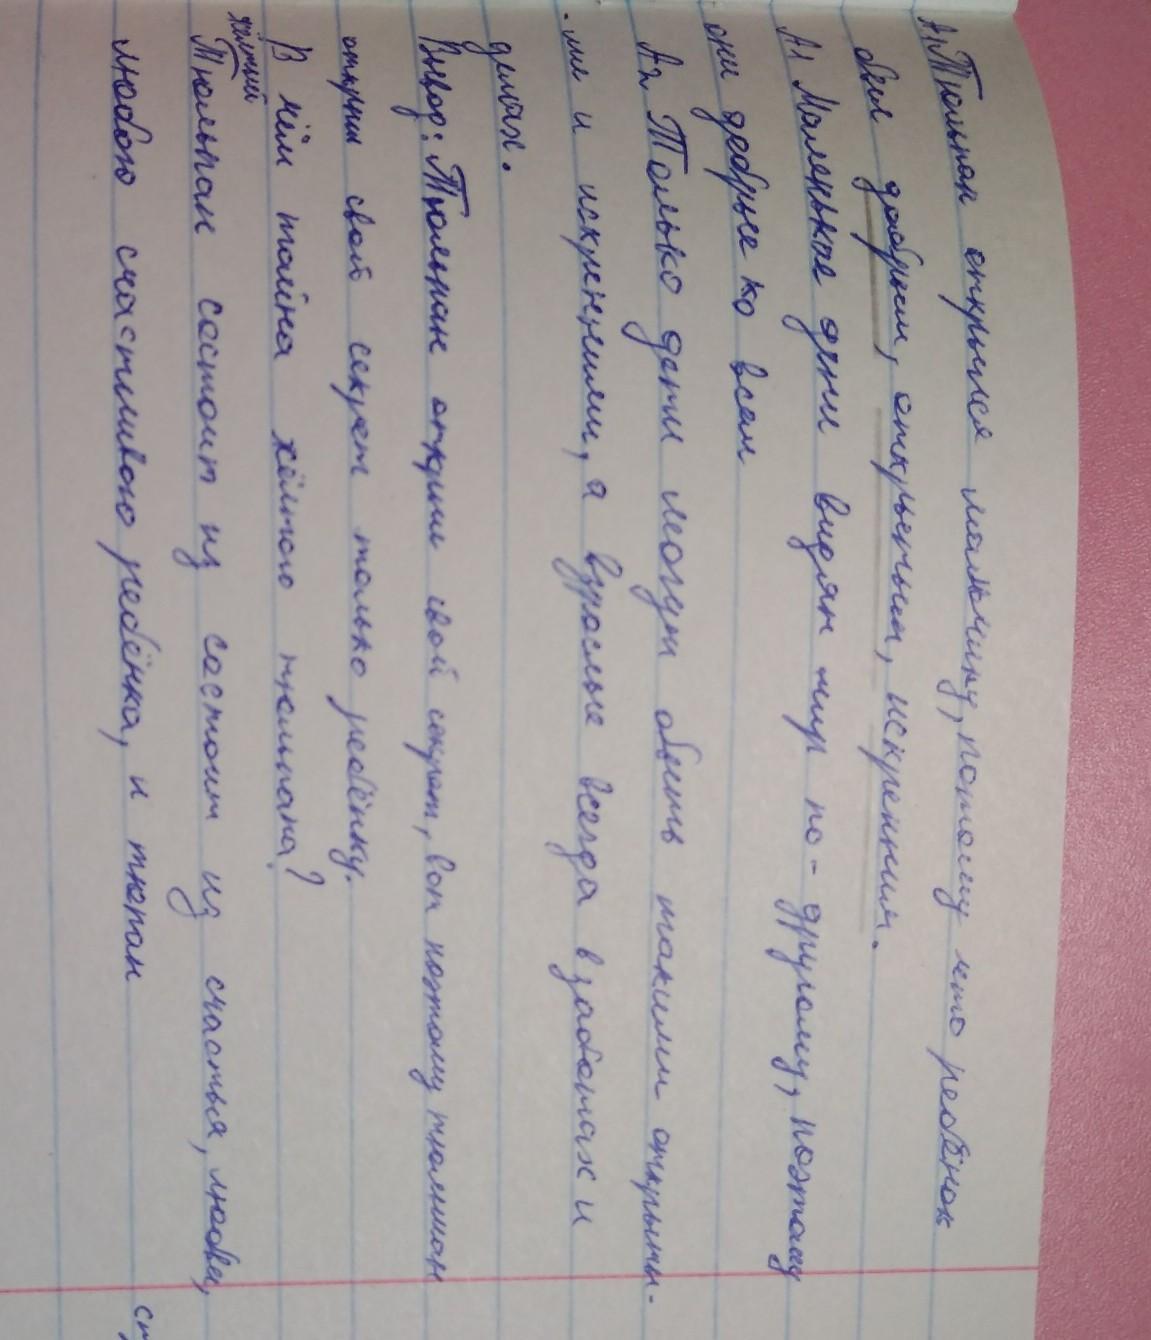 А₁ Тюльпан открылся мальчику, потому что ребёнок
был добрым, открытым, искренним.
А₁ Маленькие дети видят мир по-другому, поэтому
они добрые ко всем
А₂ Только дети могут быть такими открыты-
ми и искренними, а взрослые всегда в заботах и
делах.
Вывод: Тюльпан открыл свой секрет, вот потому тюльпан
открыл свой секрет только ребёнку.
В чём тайна жёлтого тюльпана?
жёлтый
Тюльпан состоит из состоит из счастья, любви,
любого счастливого ребёнка, и тюпан